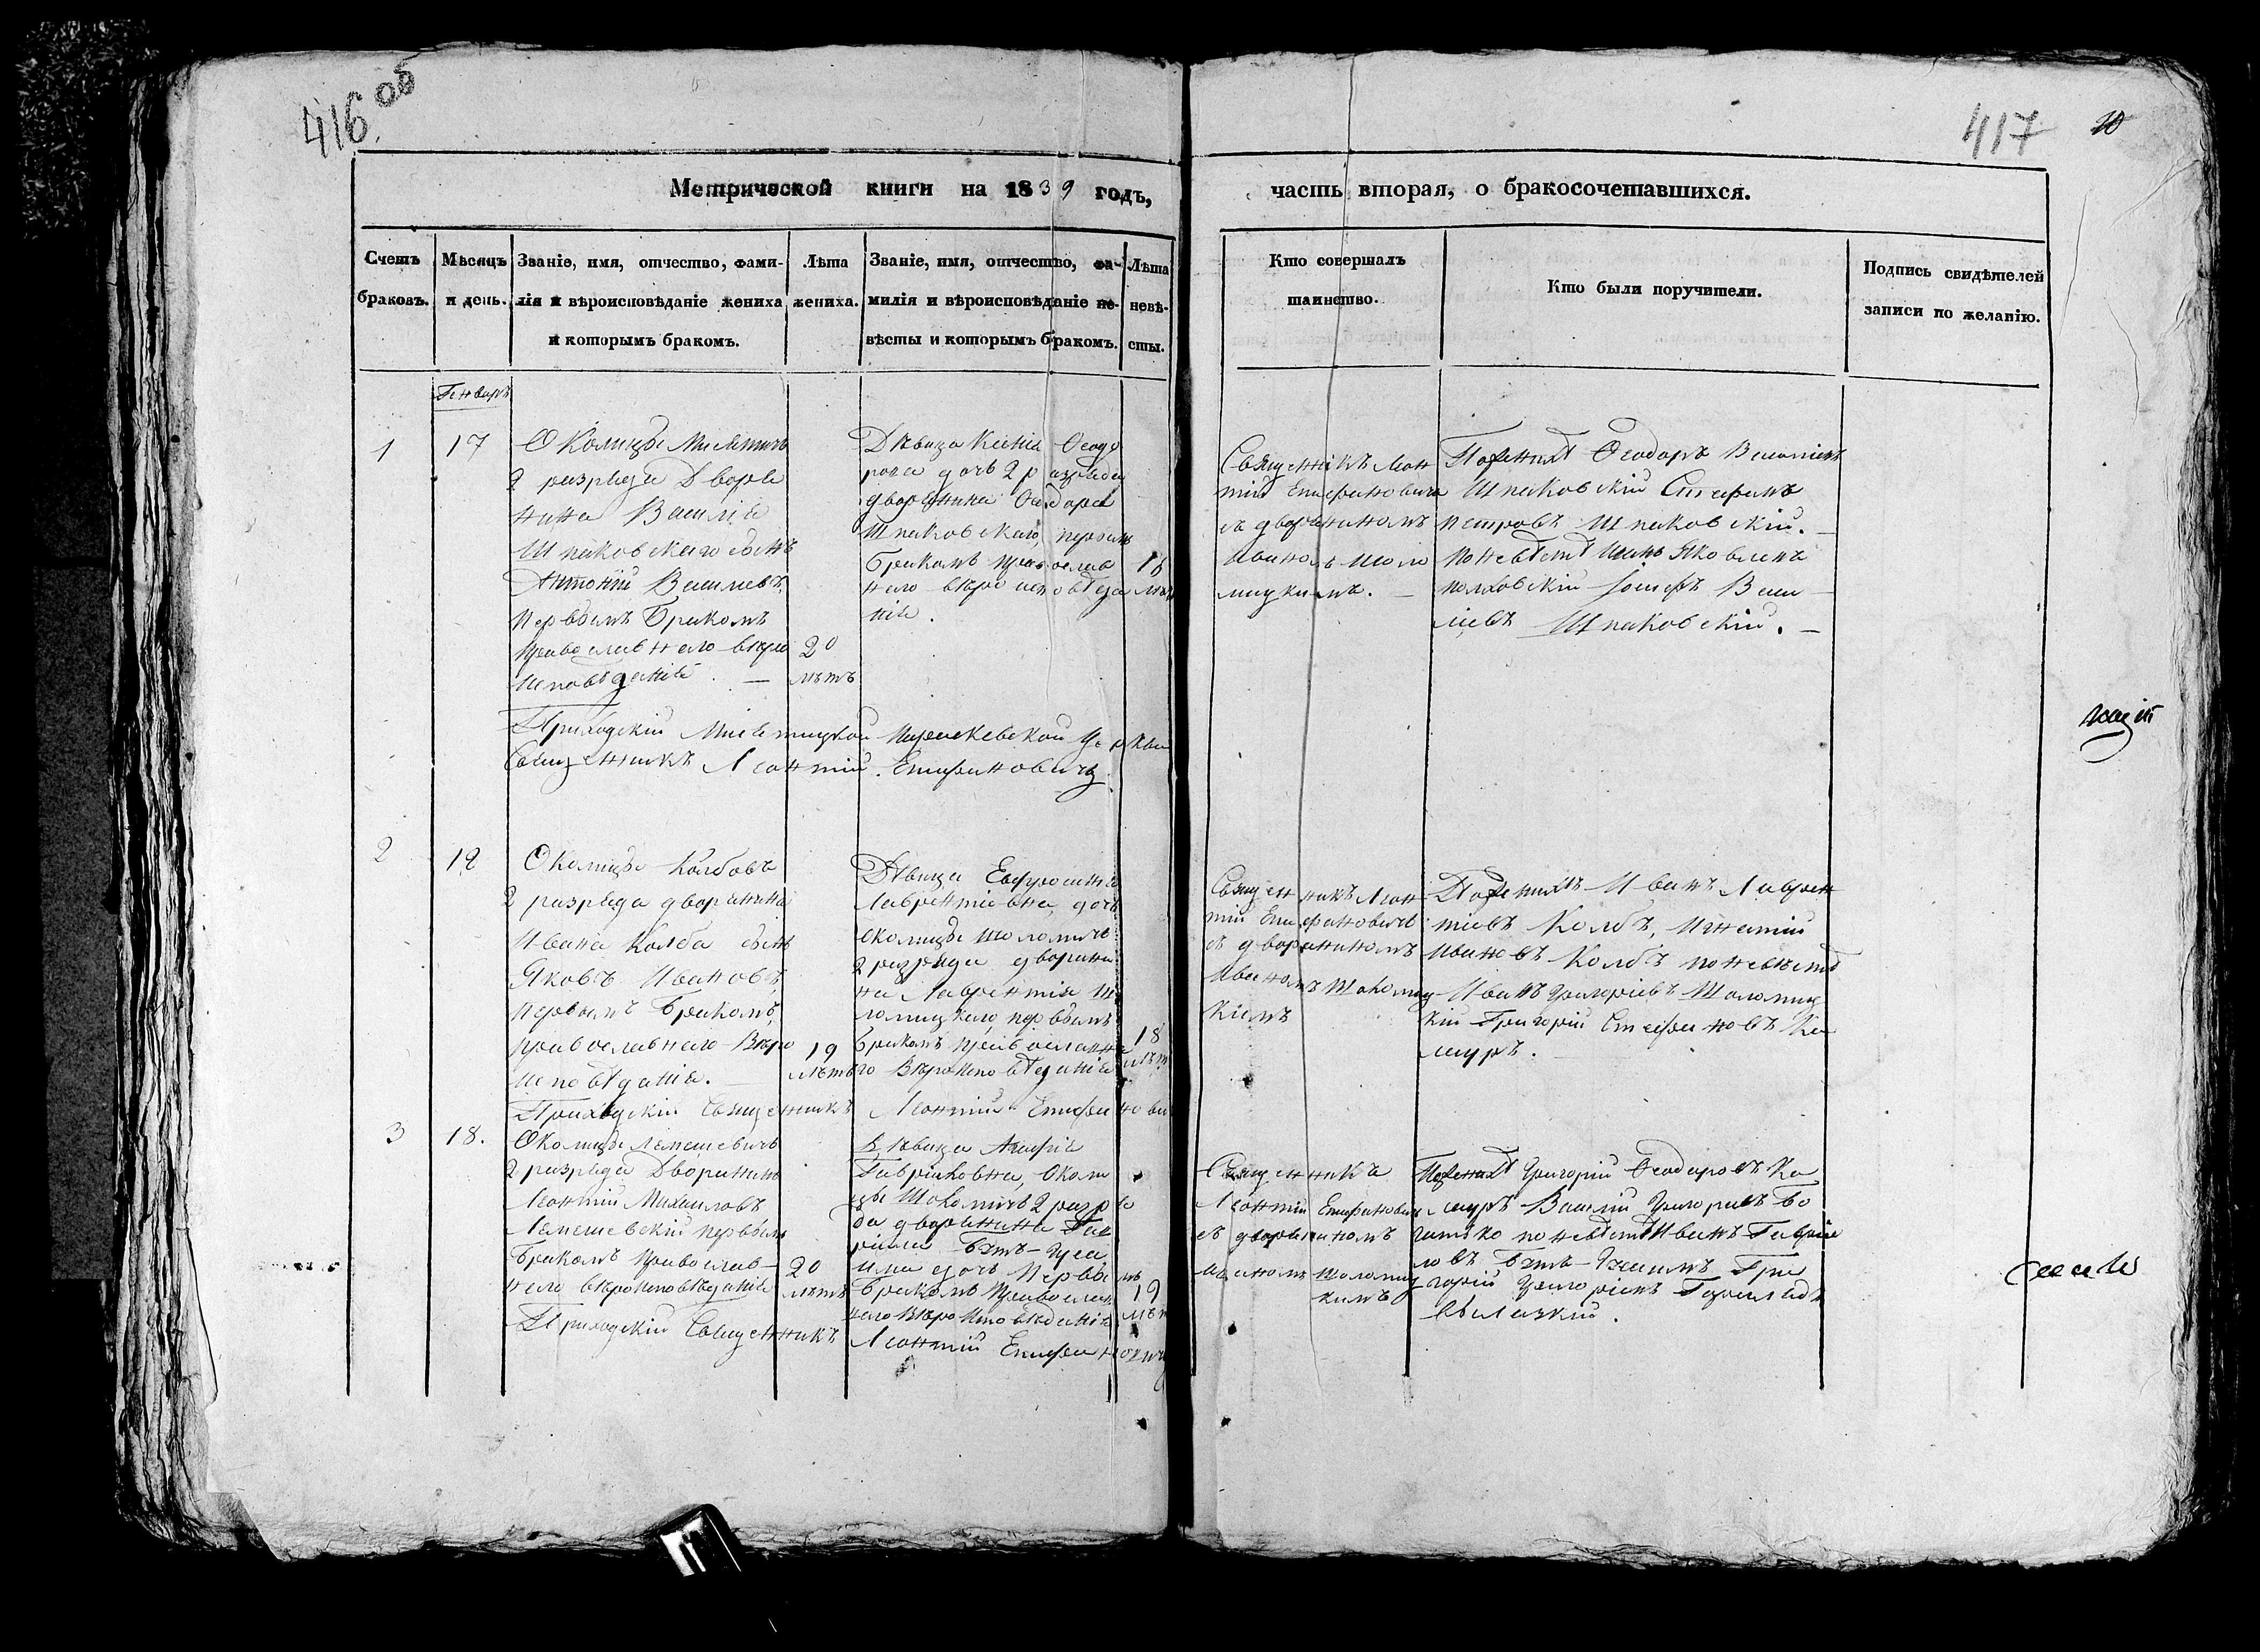 416 об
417 10
Метрической книги на 1839 годъ,
часть вторая, о бракосочетавшихся.
Счетъ
браковъ.
Мѣсяцъ
и день.
Званіе, имя, отчество, фами-
лія и вѣроисповѣданіе жениха
и которымъ бракомъ.
Лѣта
жениха.
Званіе, имя, отчество, фа-
милія и вѣроисповѣданіе не-
вѣсты и которымъ бракомъ.
Лѣта
невѣ-
сты.
Кто совершалъ
таинство.
Кто были поручители.
Подпись свидѣтелей
записи по желанію.
Генварь
1
17
Околицы Мисятичъ
2 разряда Дворя
нина Василія
Шпаковскаго сынъ
Антоній Васильевъ
первымъ бракомъ
православнаго вѣро
исповѣданія. —
20
лѣтъ
Дѣвица Ксенія Ѳеодо
рова дочь 2 разряда
дворянина Ѳеодора
Шпаковскаго, первымъ
бракомъ православ
наго вѣроисповѣда
нія.
18
лѣтъ
Священникъ Леон
тій Епифановичъ
съ дворяниномъ
Иваномъ Шоло
мицкимъ. —
По женихѣ Ѳеодоръ Васильевъ
Шпаковскій Стефанъ
Петровъ Шпаковскій. —
по невѣстѣ Яковлевъ
Іосифъ Васи
ліевъ Шпаковскій. —
Приходскій Мисятицкой Параскевской Церкви
Священникъ Леонтій Епифановичъ
2
18
Околицы Колбовъ
2 разряда дворянина
Ивана Колба сынъ
Яковъ Ивановъ
первымъ бракомъ,
православнаго Вѣро
исповѣданія. —
19
лѣтъ
Дѣвица Евфросинія
Лаврентіевна, дочь
околицы Шоломичъ
2 разряда дворяни
на Лаврентія Шо
ломицкаго, первымъ
бракомъ православна
го Вѣроисповѣданія
18
лѣтъ
Священникъ Леон
тій Епифановичъ
съ дворяниномъ
Иваномъ Шоломиц
кимъ
По женихѣ Иванъ Лаврен
тіевъ Колбъ, Игнатій
Ивановъ Колбъ по невѣстѣ
Иванъ Григоріевъ Шоломиц
кій Григорій Стефановъ Ка
шуръ.
Приходскій Священникъ Леонтій Епифанови
3
18.
Околицы Лемешевичъ
2 разряда Дворянинъ
Леонтій Михаиловъ
Лемешевскій первымъ
бракомъ православ-
наго вѣроисповѣданія
20
лѣтъ
Дѣвица Агафія
Гавріиловна, Околи
цы Шоломичъ 2 разря
да дворянина Гав
ріила
дочь Первымъ
бракомъ Православ
наго Вѣроисповѣданія
19
лѣтъ
Священникъ
Леонтій Епифановичъ
съ дворяниномъ
Иваномъ Шоломиц
кимъ
По женихѣ Григорій Ѳеодоровъ Ка
шуръ Василій Григорьевъ Бо
по невѣстѣ Иванъ Гавріи
ловъ Гри
горій Григоріевъ
Приходскій Священникъ Леонтій Епифановичъ